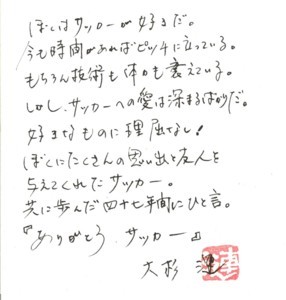 ぼくはサッカーが好きだ。
今も時間があればピッチに立っている。
もちろん技術も体力も衰えている。
しかし、サッカーへの愛は深まるばかりだ。
好きなものに理屈なし！
ぼくにたくさんの思い出と友人を
与えてくれたサッカー。
共に歩んだ四十七年間にひと言。
『ありがとう、サッカー』
大杉 漣